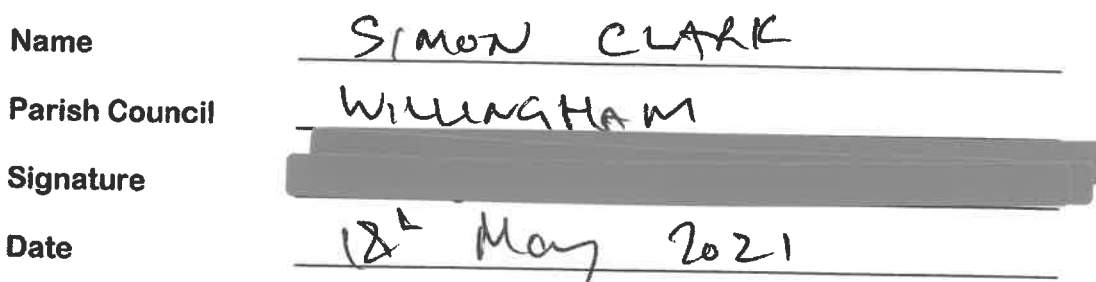 Name SIMON CLARK
Parish Council WILLINGHAM
Signature
Date 18th May 2021